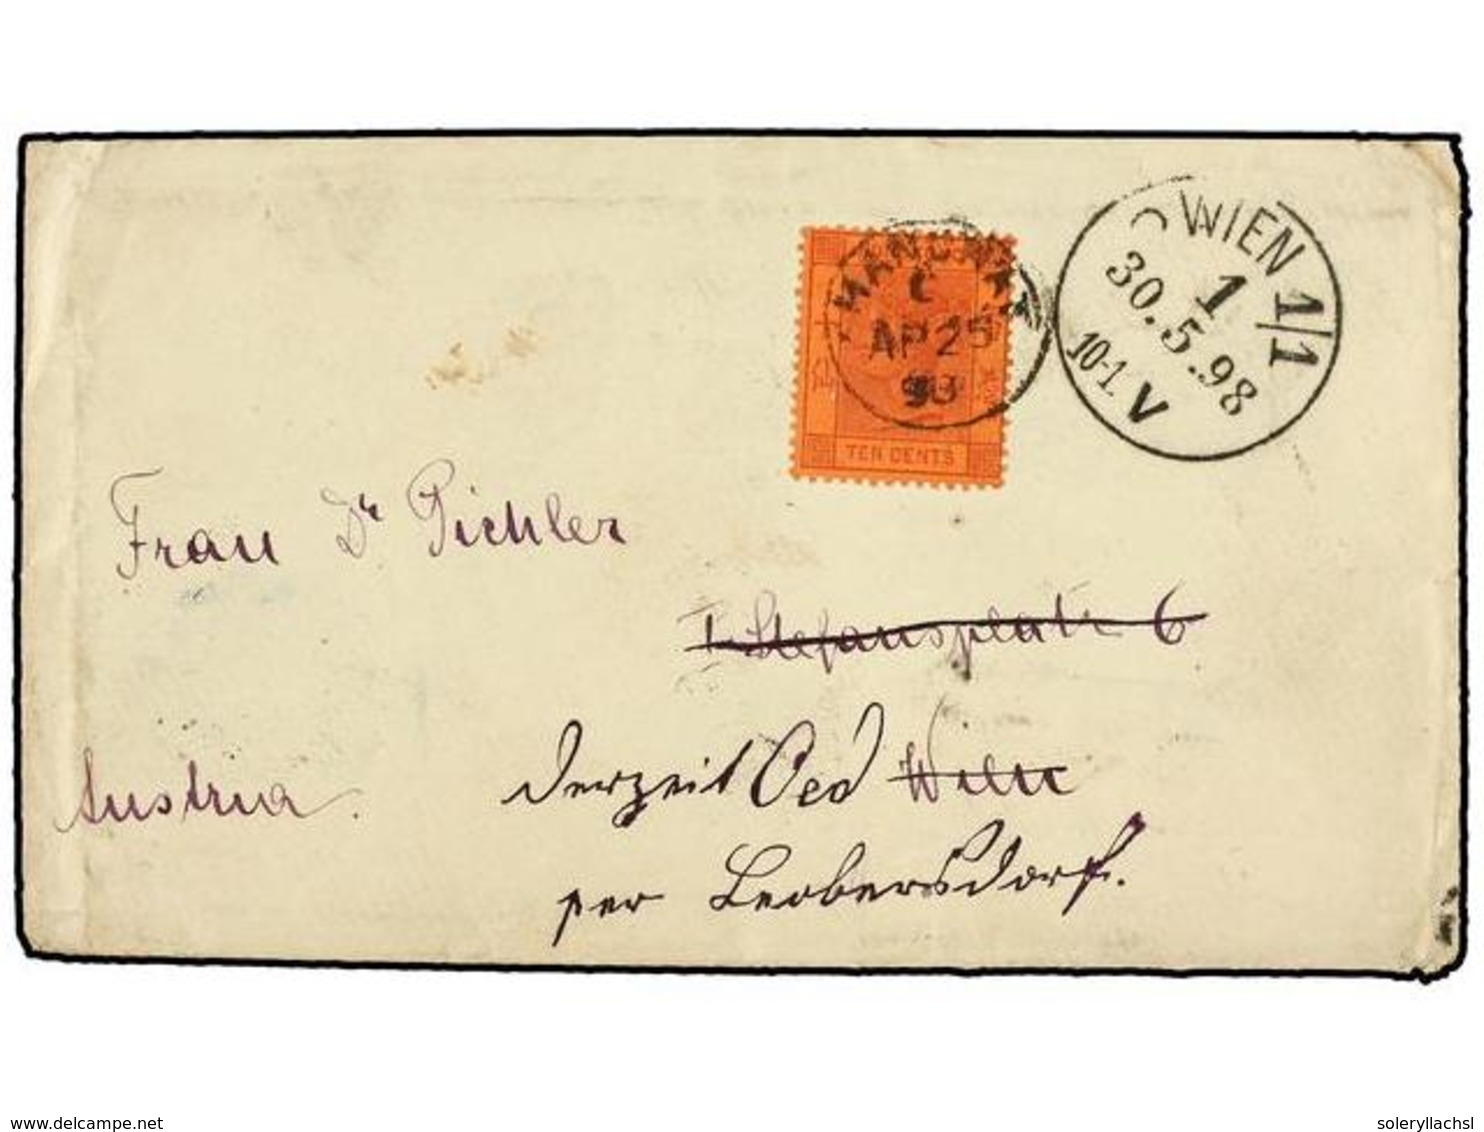 HANKOW
C
AP 25
98
TEN CENTS
WIEN 1/1
1
30.5.98
10-1. V
Frau Dr Pichler
I Stefansplatz 6
Austria.
derzeit Oed Wien
per Leobersdorf.
delcampe.net
soleryllachsl